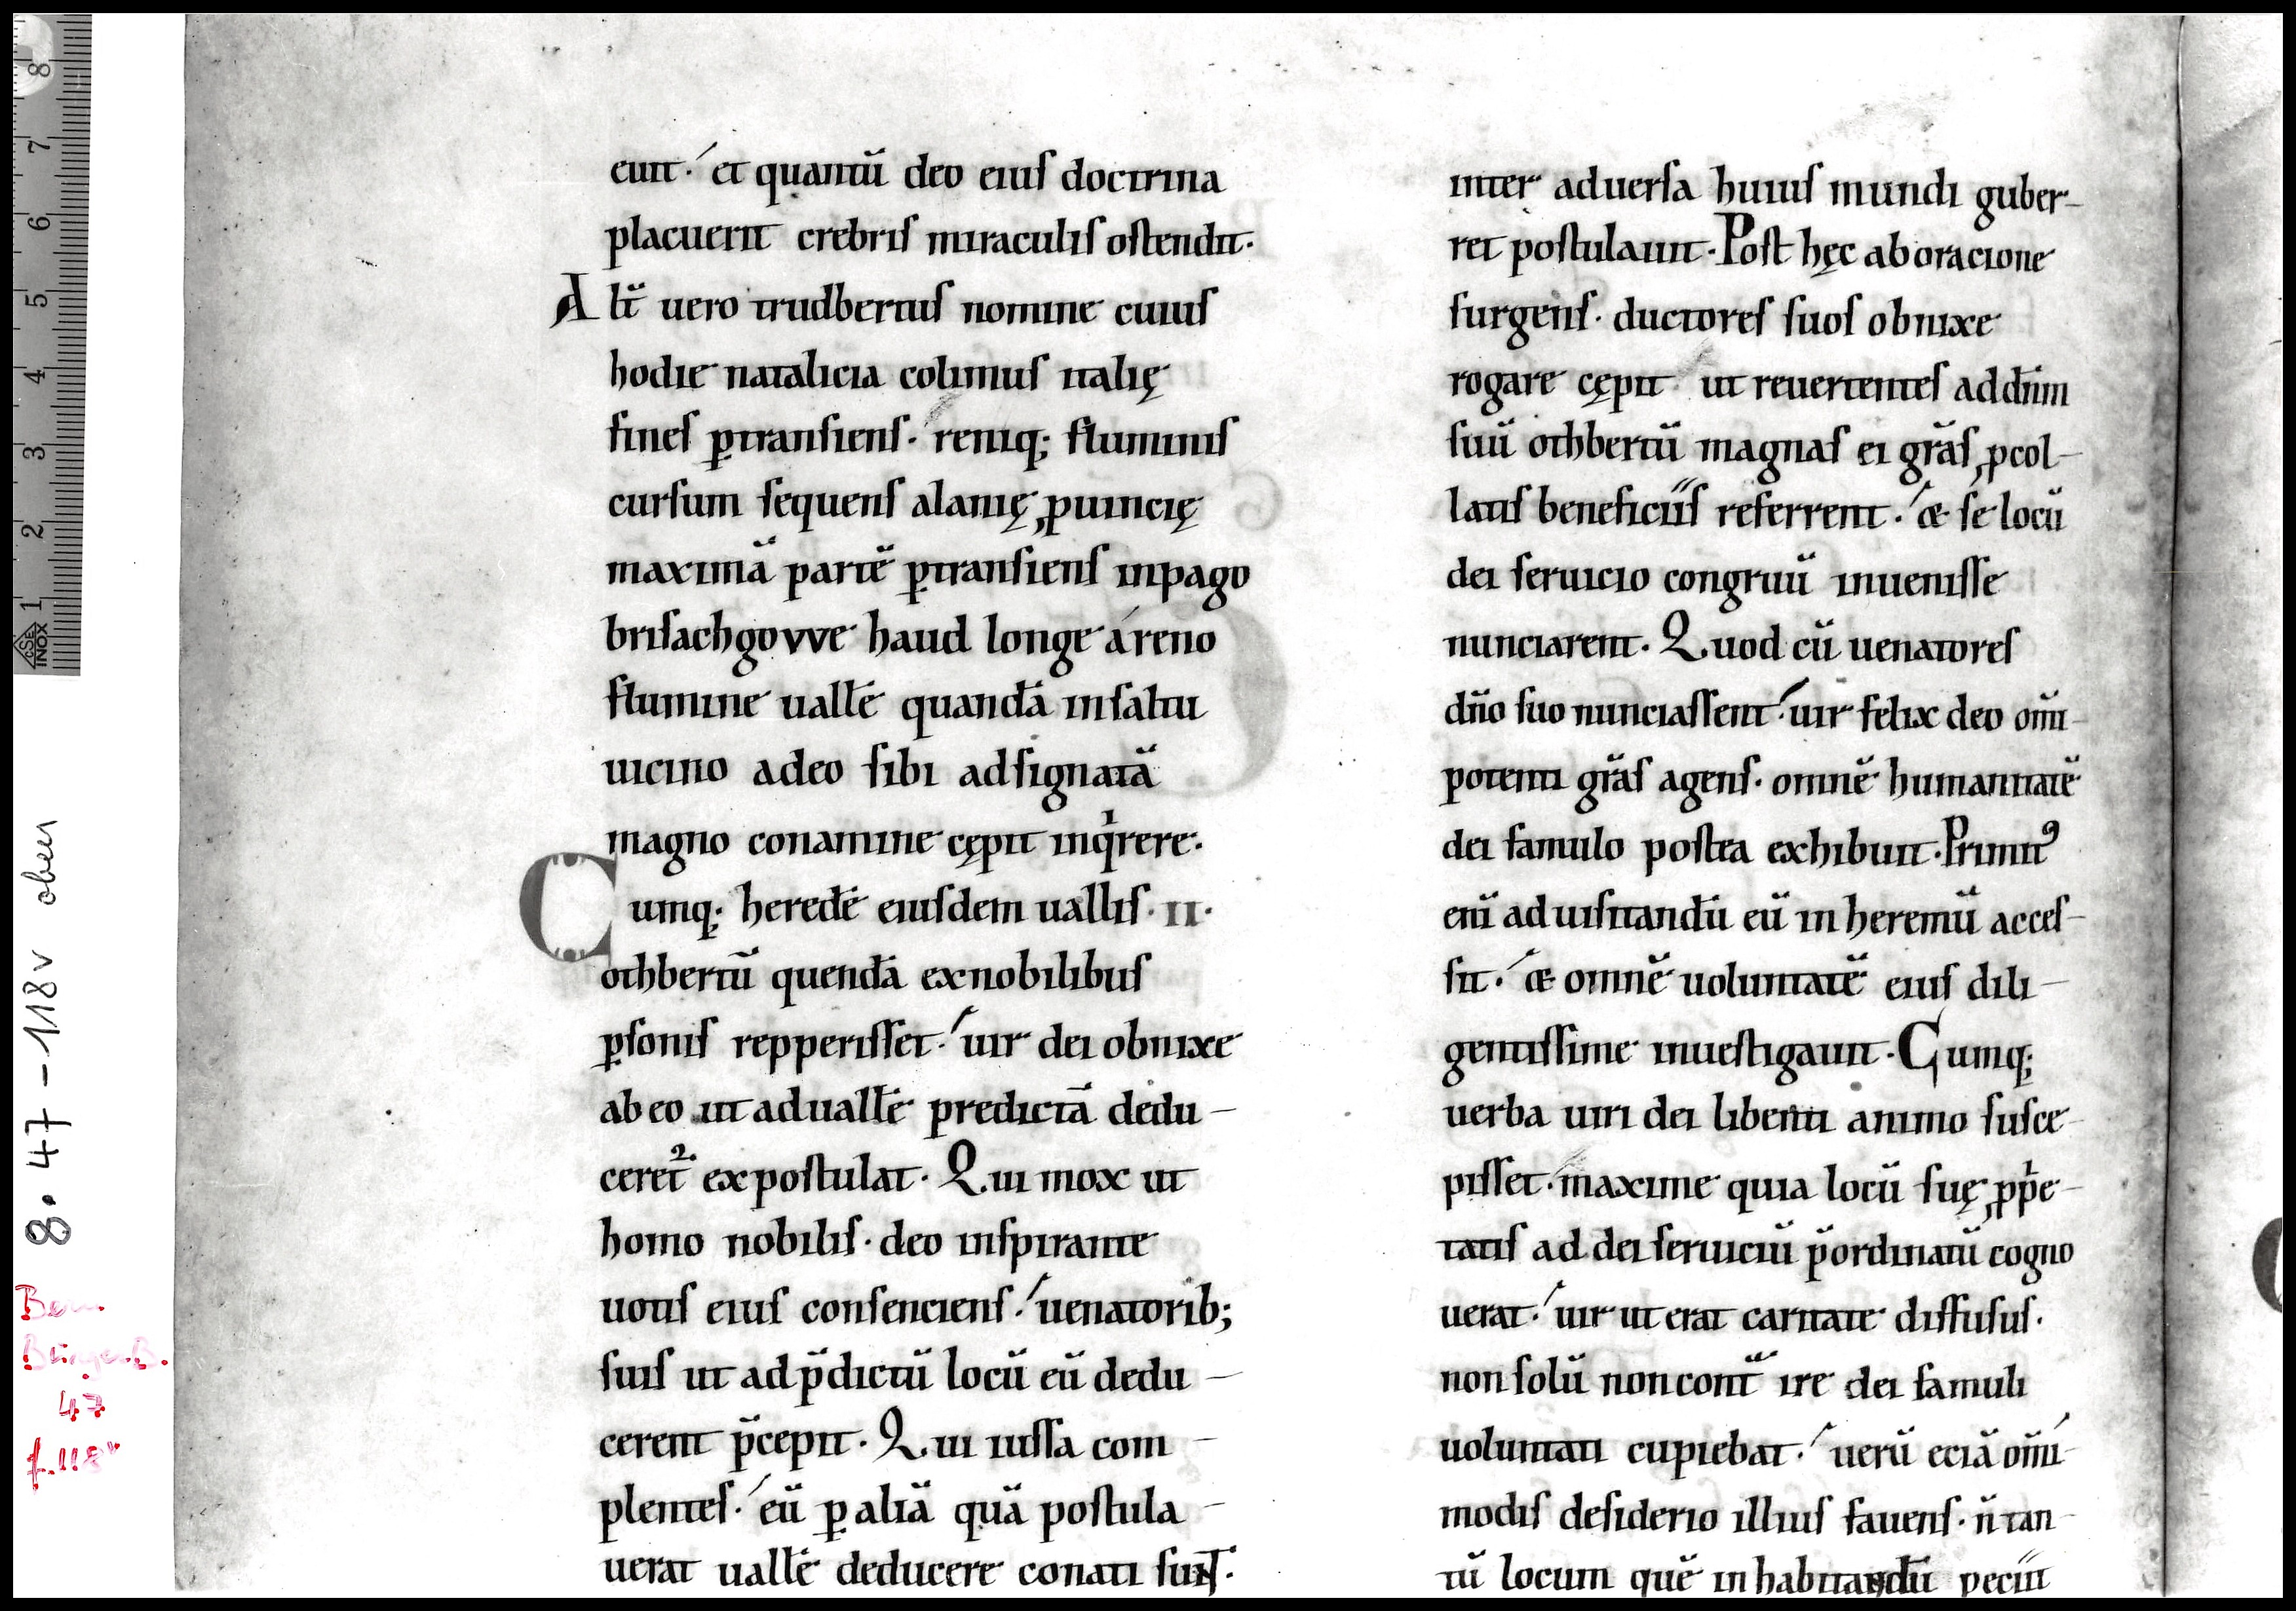 euit· et quantū deo eius doctrina
placuerit crebris miraculis ostendit·
Alt̄ uero trudbertus nomine cuius
hodie natalicia colimus italię
fines ꝑtransiens· reniq; fluminis
cursum sequens alanię ꝓuincię
maximā partē ꝑtransiens inpago
brisachgovve haud longe áreno
flumine uallē quandā insaltu
uicino adeo sibi adsignatā
magno conamine cępit inqͥrere·
Cumq; heredē eiusdem uallis· II·
othbertū quendā exnobilibus
ꝑsonis repperisset· uir dei obnixe
ab eo ut aduallē predictā dedu-
ceret᷑ expostulat· Qui mox ut
homo nobilis· deo inspirante
uotis eius consenciens· uenatorib;
suis ut ad p̄dictū locū eū dedu-
cerent p̄cepit· Qui iussa com-
plentes· eū ꝑ aliā quā postula-
uerat uallē deducere conati sunt·
inter aduersa huius mundi guber-
ret postulauit· Post hęc aboracione
surgens· ductores suos obnixe
rogare cępit ut reuertentes addn̄m
suū othbertū magnas ei grās ꝓcol-
latis beneficiis referrent· & se locū
dei seruicio congruū inuenisse
nunciarent· Quod cū uenatores
dn̄o suo nunciassent· uir felix deo om̄i-
potenti grās agens· omnē humanitatē
dei famulo postea exhibuit· Primitꝰ
enī ad uisitandū eū in heremū acces-
sit· & omnē uoluntatē eius dili-
gentissime inuestigauit· Cumq;
uerba uiri dei libenti animo susce-
pisset· maxime quia locū suę ꝓpͥe-
tatis ad dei seruiciū p̄ordinatū cogno
uerat· uir ut erat caritate diffusus·
non solū noncont̄ ire dei famuli
uoluntati cupiebat· uerū eciā om̄i-
modis desiderio illius fauens· n̄ tan-
tū locum quē inhabitandū peciit
8 7 6 5 4 3 2 1
cSe
INOX
8. 47 - 118v oben
47
f. 118v